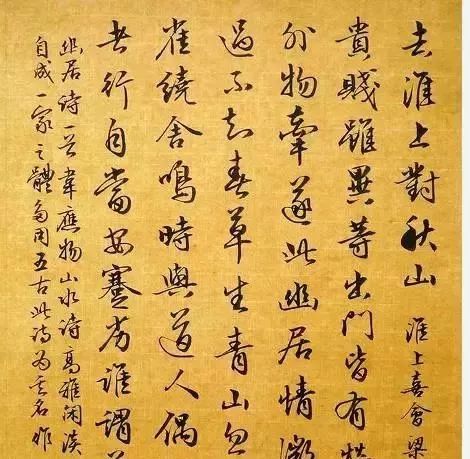 去淮上對秋山 淮上喜會梁
貴賤雖異等出門皆有
外物牽遂此幽居情微
過不知春草生青山忽
雀繞舍鳴時與道人偶
者行自當安蹇劣誰謂
幽居诗一首韋應物山水诗高雅闲淡
自成一家之體多用五古此诗为其名作